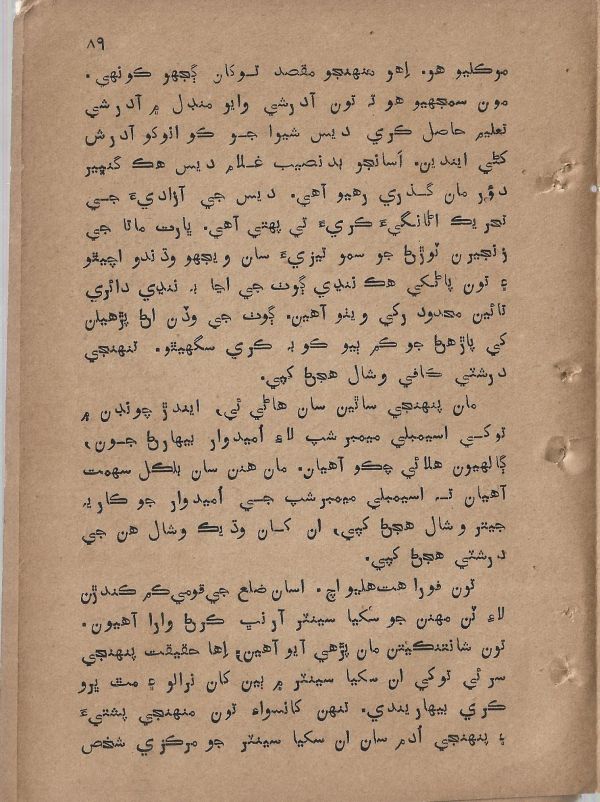 ۸۹
موڪليو هو. اِهو منهنجو مقصد توکان ڳجهو ڪونهي.
مون سمجهيو هو ته تون آدرشي وايو منڊل ۾ آدرشي
تعليم حاصل ڪري ديس شيوا جو ڪو انوکو آدرش
کڻي ايندين. اَسانجو بدنصيب غلام ديس هڪ گنڀير
دؤر مان گذري رهيو آهي. ديس جي آزاديءَ جي
تحريڪ اڻانگيءَ ڪريءَ تي پهتي آهي. ڀارت ماتا جي
زنجيرن ٽوڙڻ جو سمو تيزيءَ سان ويجهو وڌندو اچيٿو
۽ تون پاڻکي هڪ ننڍي ڳوٺ جي اڃا به ننڍي دائري
تائين محدود رکي ويٺو آهين. ڳوٺ جي وڏن اڻ پڙهيلن
کي پاڙهڻ جو ڪم ٻيو ڪو به ڪري سگهيٿو. تنهنجي
درشٽي ڪافي وشال هجڻ کپي.
مان پنهنجي ساٿين سان هاڻي ئي، ايندڙ چونڊن ۾
توکي اسيمبلي ميمبر شپ لاءِ اُميدوار بيهارڻ جون،
ڳالهيون هلائي چڪو آهيان. مان هنن سان بلڪل سهمت
آهيان ته اسيمبلي ميمبرشپ جي اُميدوار جو ڪاريه
جيتر وشال هجڻ کپي، ان کان وڌيڪ وشال هن جي
درشٽي هجڻ کپي.
تون فورا هت هليو اچ. اسان ضلع جي قومي ڪم ڪندڙن
لاءِ ٽن مهنن جو سکيا سينٽر آرنڀ ڪرڻ وارا آهيون.
تون شانتنڪيتن مان پڙهي آيو آهين؛ اِها حقيقت پنهنجي
سر ئي توکي ان سکيا سينٽر ۾ ٻين کان نرالو ۽ مٿڀرو
ڪري بيهاريندي. تنهن کانسواءِ تون منهنجي پٺڀيءَ
۽ پنهنجي اُدم سان ان سکيا سينٽر جو مرڪزي شخص